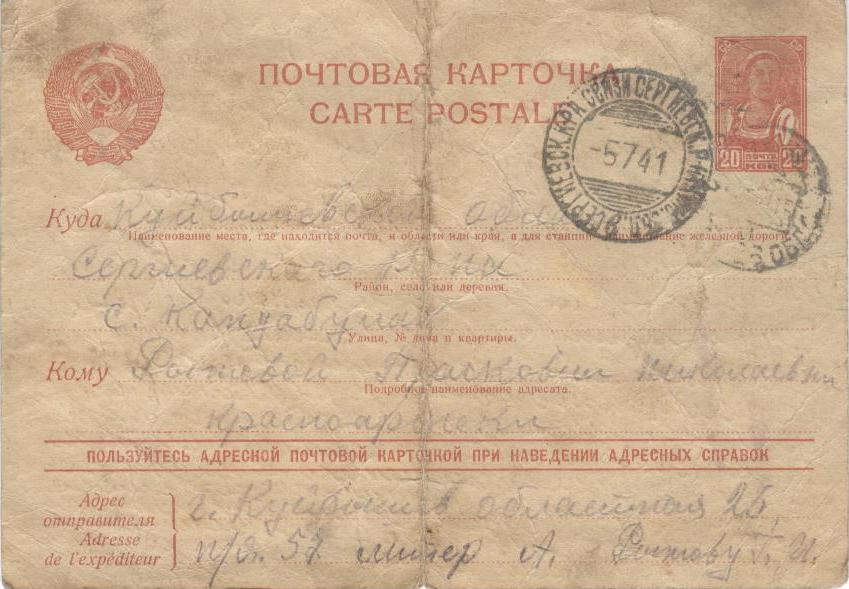 ПОЧТОВАЯ КАРТОЧКА
CARTE POSTALE
-5741
20 ПОЧТА 20
КОП
Куда Куйбышевской обла
Наименование места, где находится почта, и области или края, а для станции наименование железной дороги
Сергиевского р-на
Район, село или деревня.
с. Кандабулак
Улица, № дома и квартиры.
Кому Прасковии Николаевны
Подробное наименование адресата.
красноармейки
ПОЛЬЗУЙТЕСЬ АДРЕСНОЙ ПОЧТОВОЙ КАРТОЧКОЙ ПРИ НАВЕДЕНИИ АДРЕСНЫХ СПРАВОК
Адрес
отправителя
Adresse
de l'expéditeur
г. Куйбышев областная
п/я. 57 литер А.